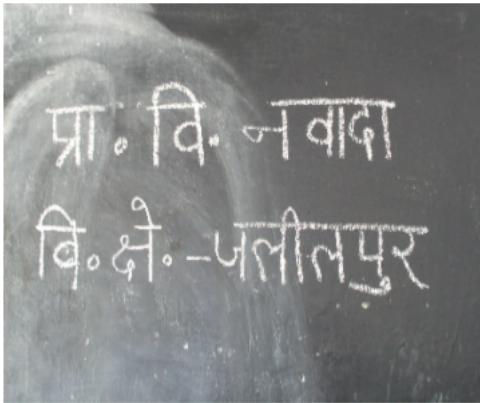 प्रा. वि. नवादा
वि. क्षे. -जलीलपुर